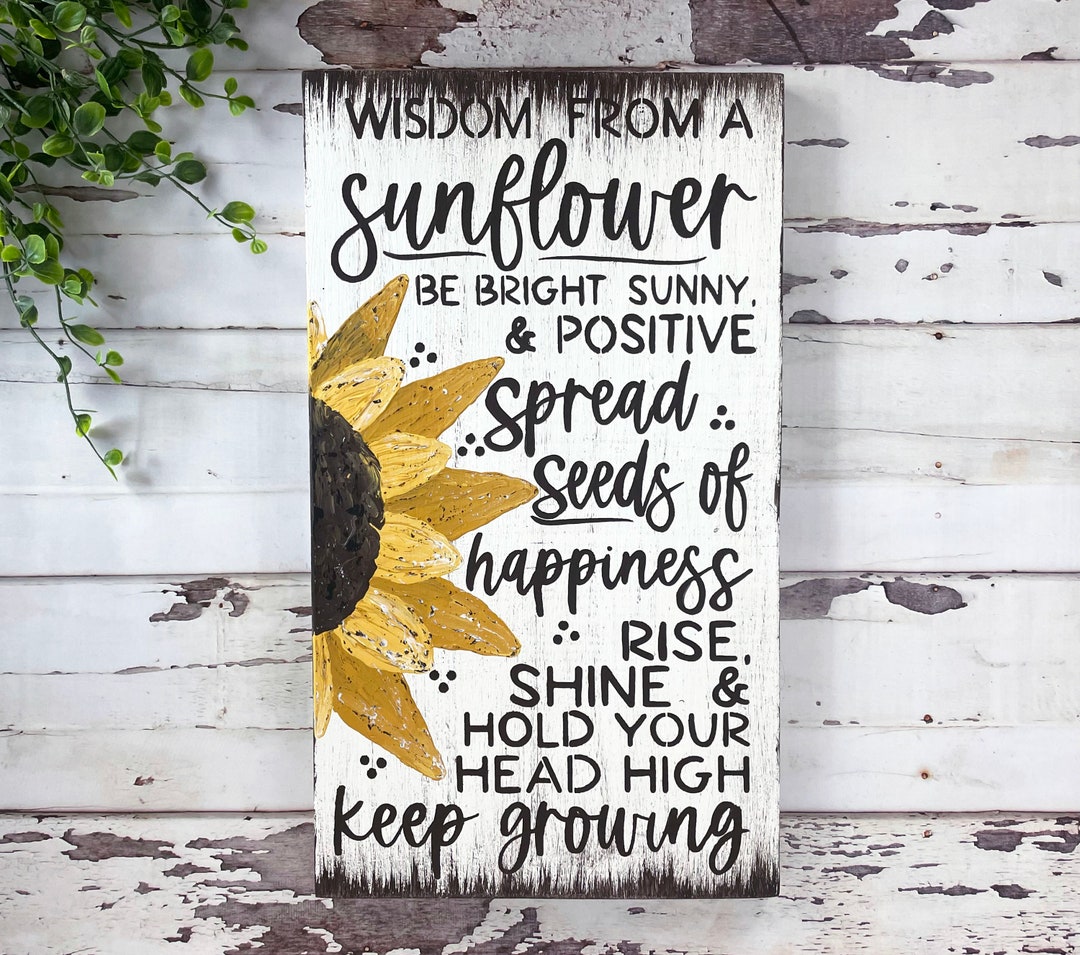 WISDOM FROM A
sunflower
BE BRIGHT SUNNY,
& POSITIVE
spread
seeds of
happiness
RISE,
SHINE &
HOLD YOUR
HEAD HIGH
keep growing